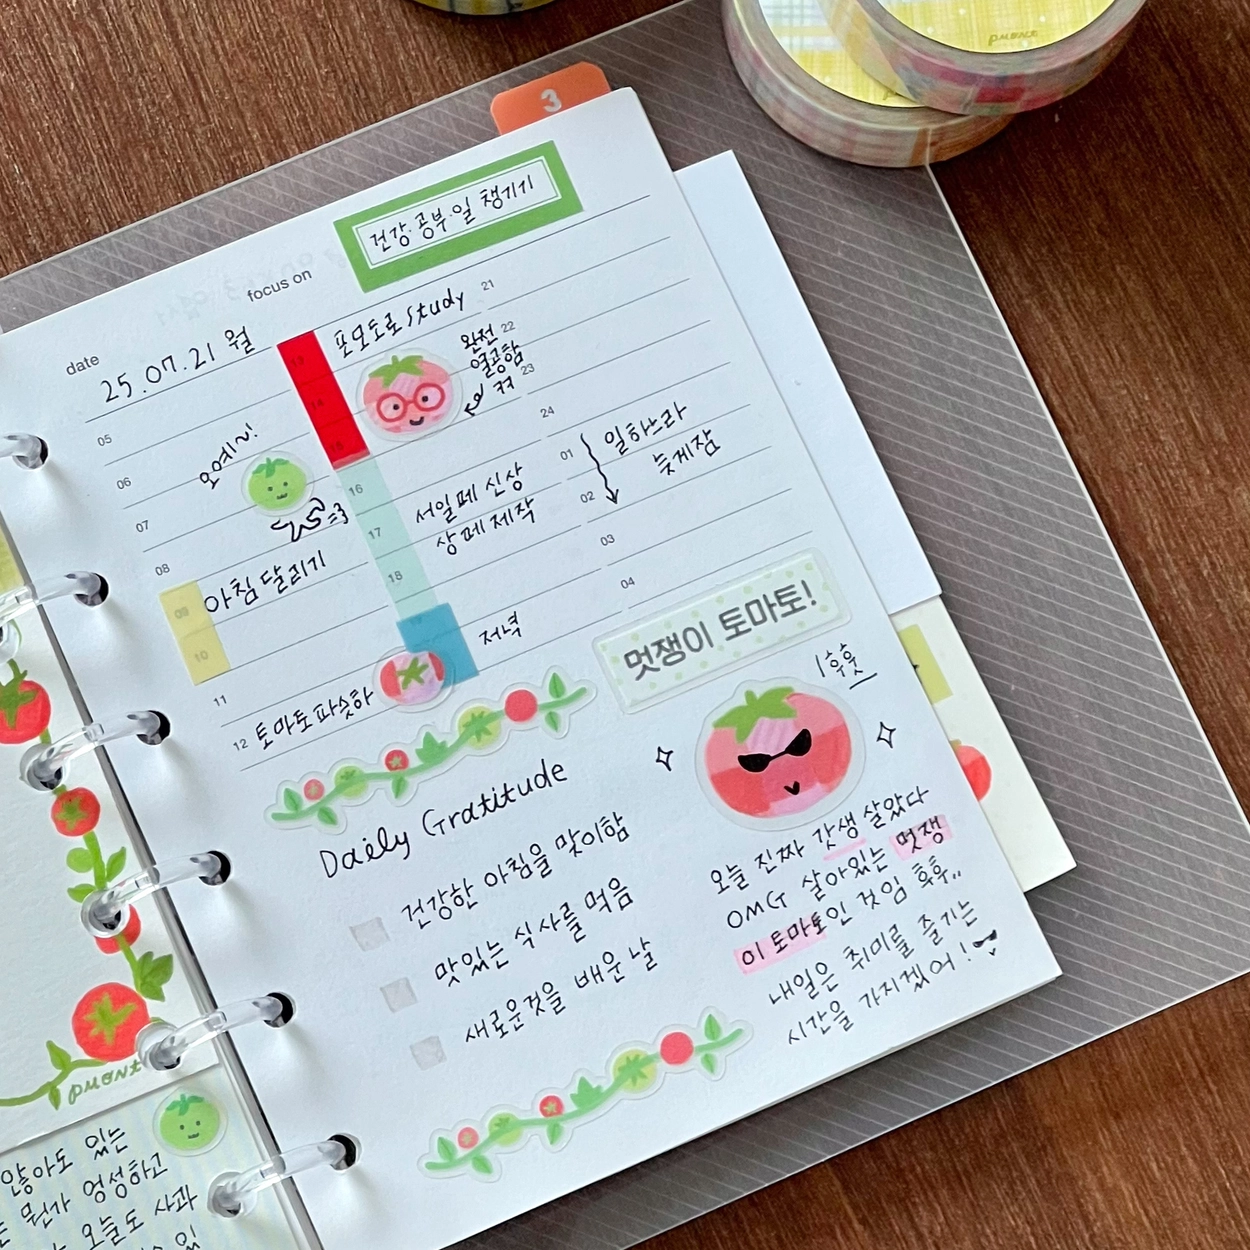 3
건강·공부·일 챙기기
focus on
date
25.07.21 월
05
06
07
08
09
10
11
12
오예~!
아침 달리기
토마토파슷하
13
14
15
16
17
18
포모도로 study
완전
열공함
ㅋㅋ
서일페 신상
상페제작
저녁
21
22
23
24
01
02
03
04
일하느라
늦게잠
멋쟁이 토마토!
후훗
Daily Gratitude
건강한 아침을 맞이함
맛있는 식사를 먹음
새로운것을 배운 날
오늘 진짜 갓생 살았다
OMG 살아있는 멋쟁
이 토마토인 것임 휴휴..
내일은 취미를 즐기는
시간을 가지겠어!
PMONT
않아도 있는
뭔가 엉성하고
오늘도 사과